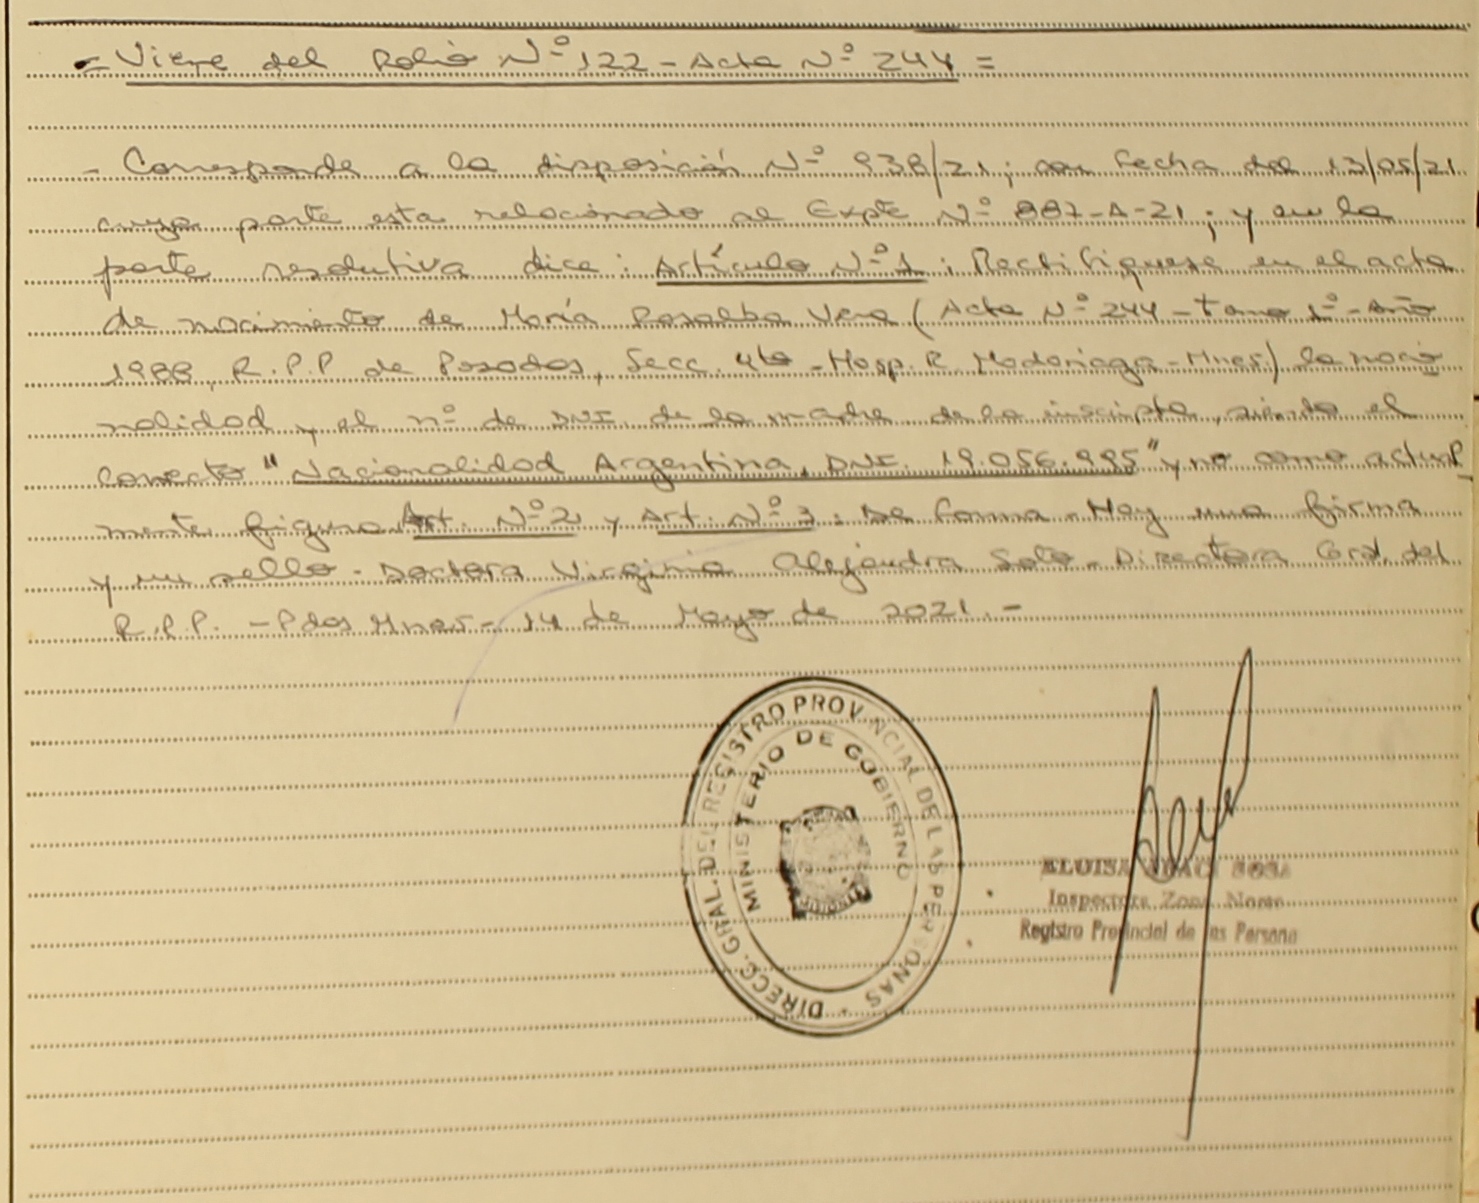 - Viene del Folio Nº 122 - Acta Nº 244 =
- Corresponde a la disposición Nº 938/21; con fecha del 13/05/21
cuya parte esta relacionado al Expte Nº 887-A-21; y en la
parte resolutiva dice: Artículo Nº 1: Rectifiquese en el acta
de nacimiento de María Rosalba Vera (Acta Nº 244 - Tomo 1º - Año
1988, R.P.P de Posadas, Secc. 4ta - Hosp. R. Madariaga - Mnes) la nacio
nalidad y el nº de DNI. de la madre de la inscripta, siendo el
correcto "Nacionalidad Argentina, DNI. 19.056.995" y no como actual
mente figura. Art. Nº 2 y Art. Nº 3: De forma - Hay una firma
y un sello - Doctora Virginia Alejandra Soto - Directora Gral. del
R.P.P. - Pdas Mnes - 14 de Mayo de 2021. -
DIRECC. GRAL. DEL REGISTRO PROVINCIAL DE LAS PERSONAS -
MINISTERIO DE GOBIERNO
SOSA
Inspectora Zona Norte
Registro Provincial de las Persona